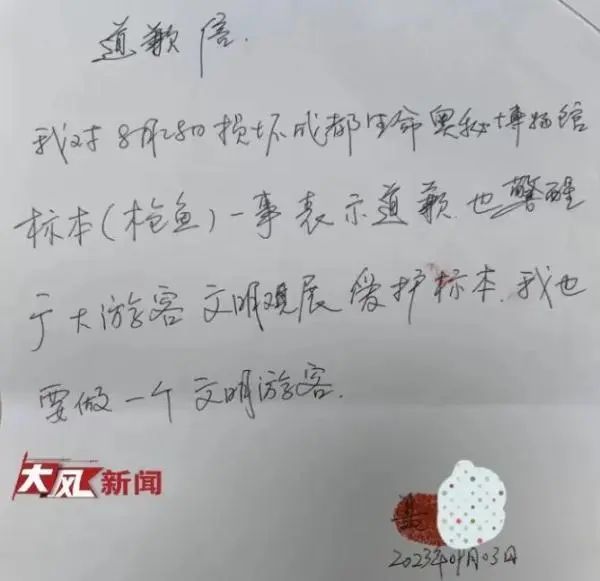 道歉信.
我对8月28日损坏成都生命奥秘博物馆
标本(枪鱼)一事表示道歉.也警醒
广大游客文明观展爱护标本.我也
要做一个文明游客.
大风新闻
2023年9月03日